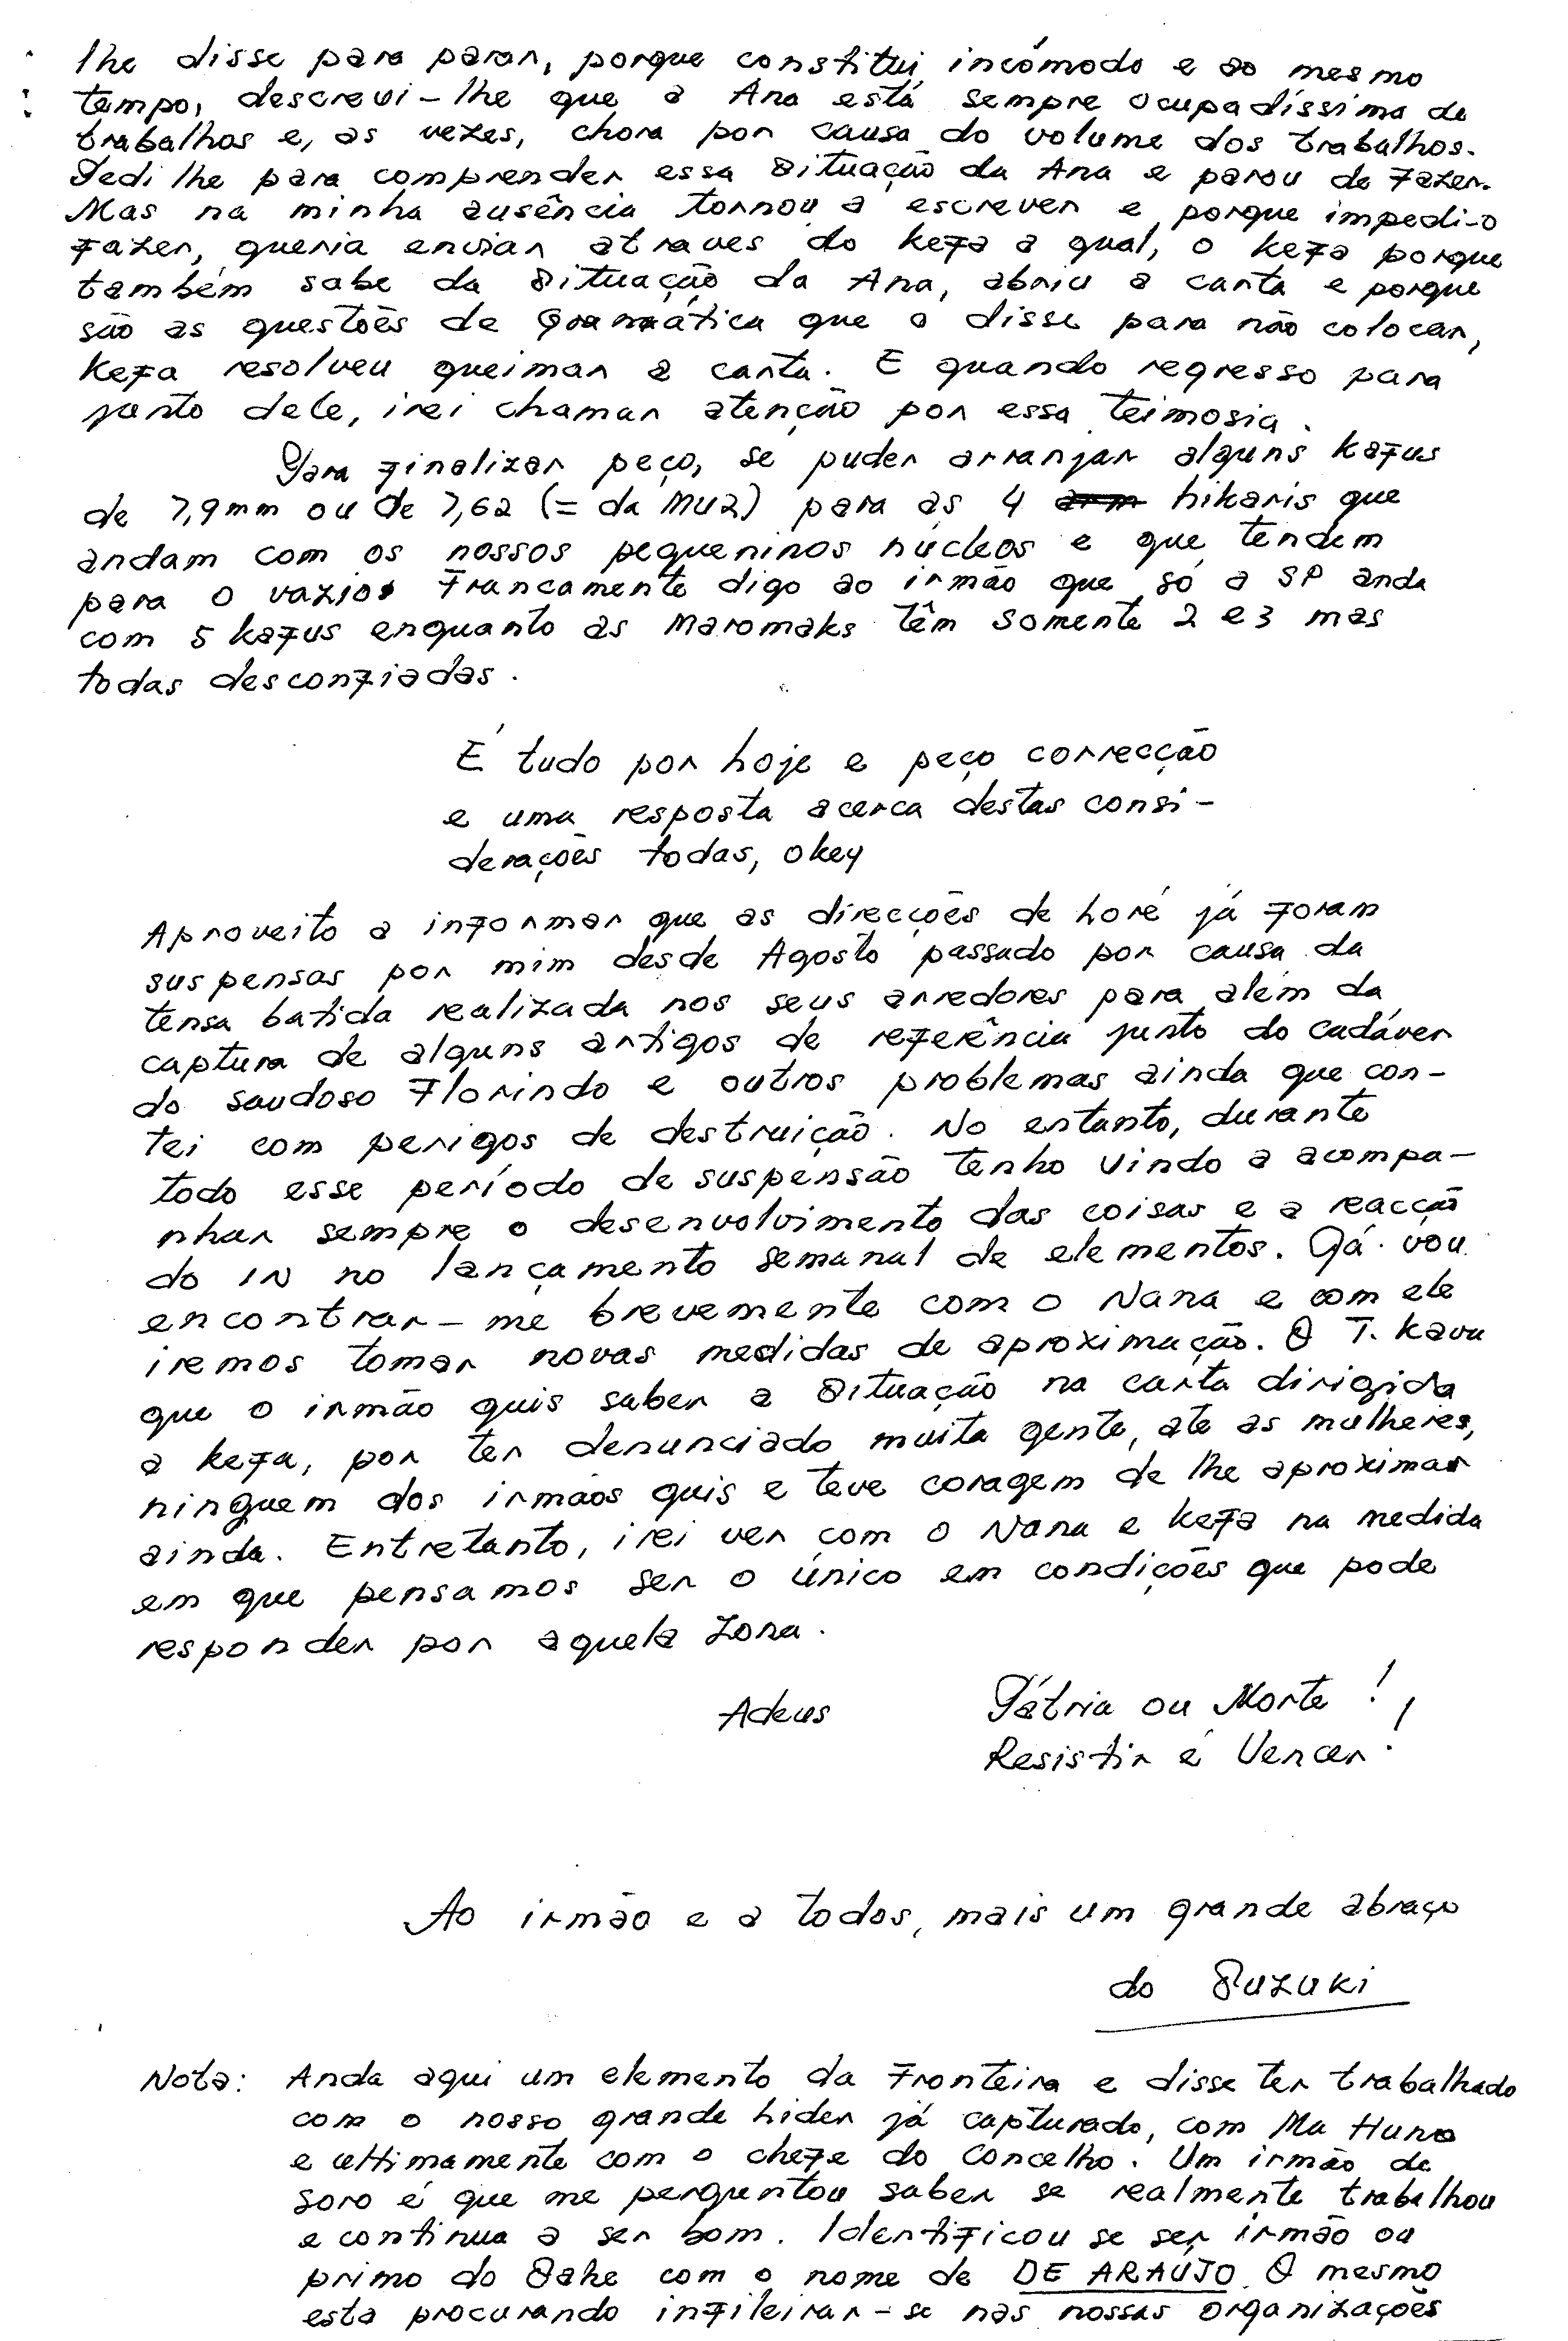 lhe disse para parar, porque constitui incómodo e ao mesmo
tempo, descrevi-lhe que a Ana está sempre ocupadíssima de
trabalhos e, as vezes, chora por causa do volume dos trabalhos.
Pedi lhe para comprender essa situação da Ana e parou de fazer.
Mas na minha ausência tornou a escrever e porque impedi-o
fazer, queria enviar atraves do kefa a qual, o kefa porque
também sabe da situação da Ana, abriu a carta e porque
são as questões de gramática que o disse para não colocar,
kefa resolveu queimar a carta. E quando regresso para
junto dele, irei chamar atenção por essa teimosia.
Para finalizar peço, se puder arranjar alguns kafus
de 7,9mm ou de 7,62 (= da MU2) para as 4 hikaris que
andam com os nossos pequeninos núcleos e que tendem
para o vazio. Francamente digo ao irmão que só a SP anda
com 5 kafus enquanto as Maromaks têm somente 2 e 3 mas
todas desconfiadas.
É tudo por hoje e peço correcção
e uma resposta acerca destas consi-
derações todas, okey
Aproveito a informar que as direcções de Loré já foram
suspensas por mim desde Agosto passado por causa da
tensa batida realizada nos seus arredores para além da
captura de alguns artigos de referência junto do cadáver
do saudoso Florindo e outros problemas ainda que con-
tei com perigos de destruição. No entanto, durante
todo esse período de suspensão tenho vindo a acompa-
nhar sempre o desenvolvimento das coisas e a reacção
do IN no lançamento semanal de elementos. Já vou
encontrar-me brevemente com o Nana e com ele
iremos tomar novas medidas de aproximação. O T. Kavu
que o irmão quis saber a situação na carta dirigida
a kefa, por ter denunciado muita gente, ate as mulheres,
ninguem dos irmãos quis e teve coragem de lhe aproximar
ainda. Entretanto, irei ver com o Nana e kefa na medida
em que pensamos ser o único em condições que pode
responder por aquela zona.
Adeus Pátria ou Morte!
Resistir é Vencer!
Ao irmão e a todos, mais um grande abraço
do Suzuki
Nota: Anda aqui um elemento da Fronteira e disse ter trabalhado
com o nosso grande Lider já capturado, com Ma Huno
e ultimamente com o chefe do Concelho. Um irmão de
soro é que me perguntou saber se realmente trabalhou
e continua a ser bom. Identificou se ser irmão ou
primo do Sahe com o nome de DE ARAÚJO. O mesmo
esta procurando infileirar-se nas nossas organizações